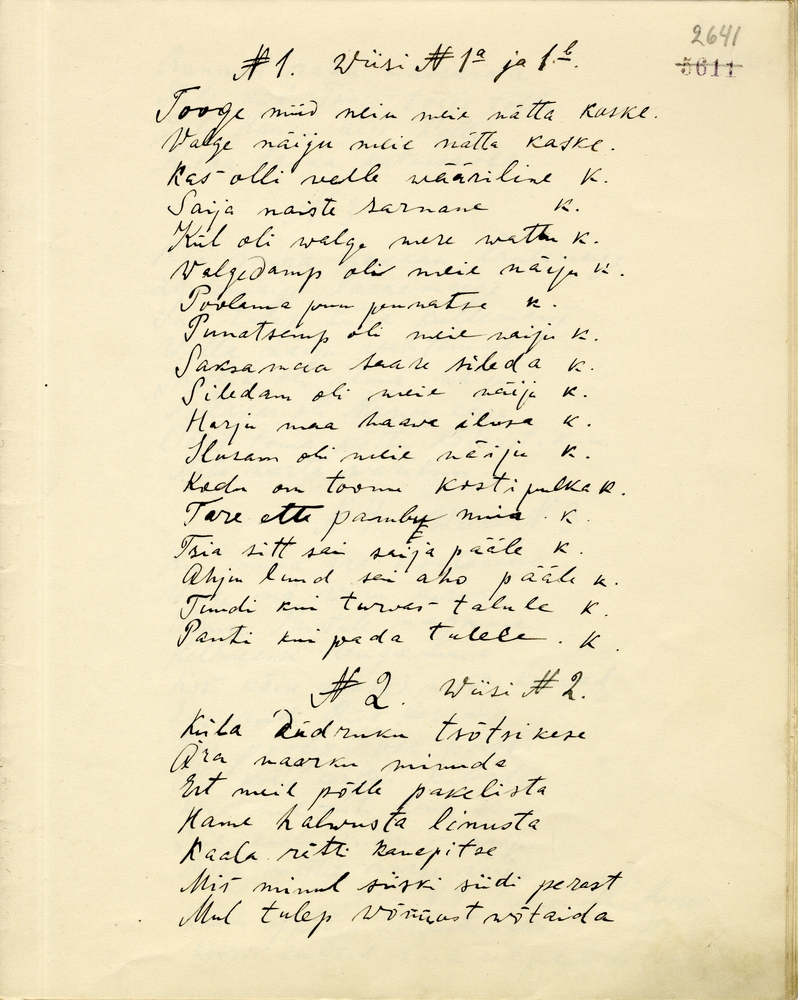 2641
5611
№ 1. Wiisi № 1a ja 1b.
Tooge nüid neiu meie nätta kaske.
Valge näiju meie nätta kaske.
Kas olli velle wääriline k.
Saija naiste sarnane k.
Kül oli walge mere wattu k.
Valgedamp oli meie näiju k.
Poolama puu punatse k.
Punatsemp oli meie naiju k.
Saksamaa saare sileda k.
Siledam oli meie näiju k.
Harju maa haava ilusa k.
Ilusam oli meie näiju k.
Kodu on toomu kosti pulka k.
Tare ette pambu k.
Tsia sitt sai saija pääle k.
Ahju luud sai aho pääle k.
Tundi kui turvas talule k.
Panti kui pada tulele. k.
№ 2. Wiisi № 2.
Küla düdruku tsõtsikese
Ära naarku minuda
Ent meil põlle pakelista
Hame halwusta linusta
Kaala rätti kanepitse
Mis minul siiski siidi perast
Mul tulep wõtaida